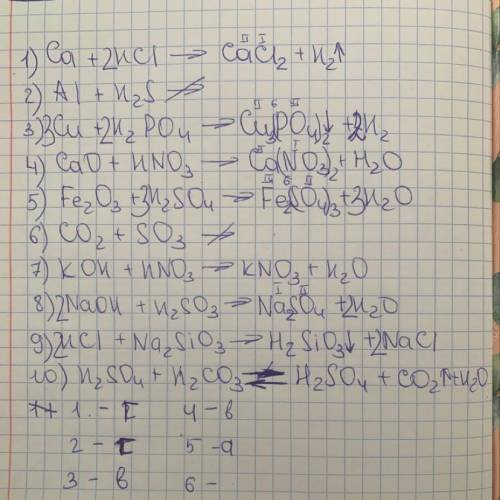 1) Ca + 2HCl → CaCl₂ + H₂↑
2) Al + H₂S ↛
3) 3Cu + 2H₂PO₄ → Cu₃(PO₄)₂↓ + 2H₂
4) CaO + HNO₃ → Ca(NO₃)₂ + H₂O
5) Fe₂O₃ + 3H₂SO₄ → Fe₂(SO₄)₃ + 3H₂O
6) CO₂ + SO₃ ↛
7) KOH + HNO₃ → KNO₃ + H₂O
8) 2NaOH + H₂SO₃ → Na₂SO₄ + 2H₂O
9) 2HCl + Na₂SiO₃ → H₂SiO₃↓ + 2NaCl
10) H₂SO₄ + H₂CO₃ ⇄ H₂SO₄ + CO₂↑ + H₂O
1. - Г 4 - в
2 - Г 5 - а
3 - в 6 -